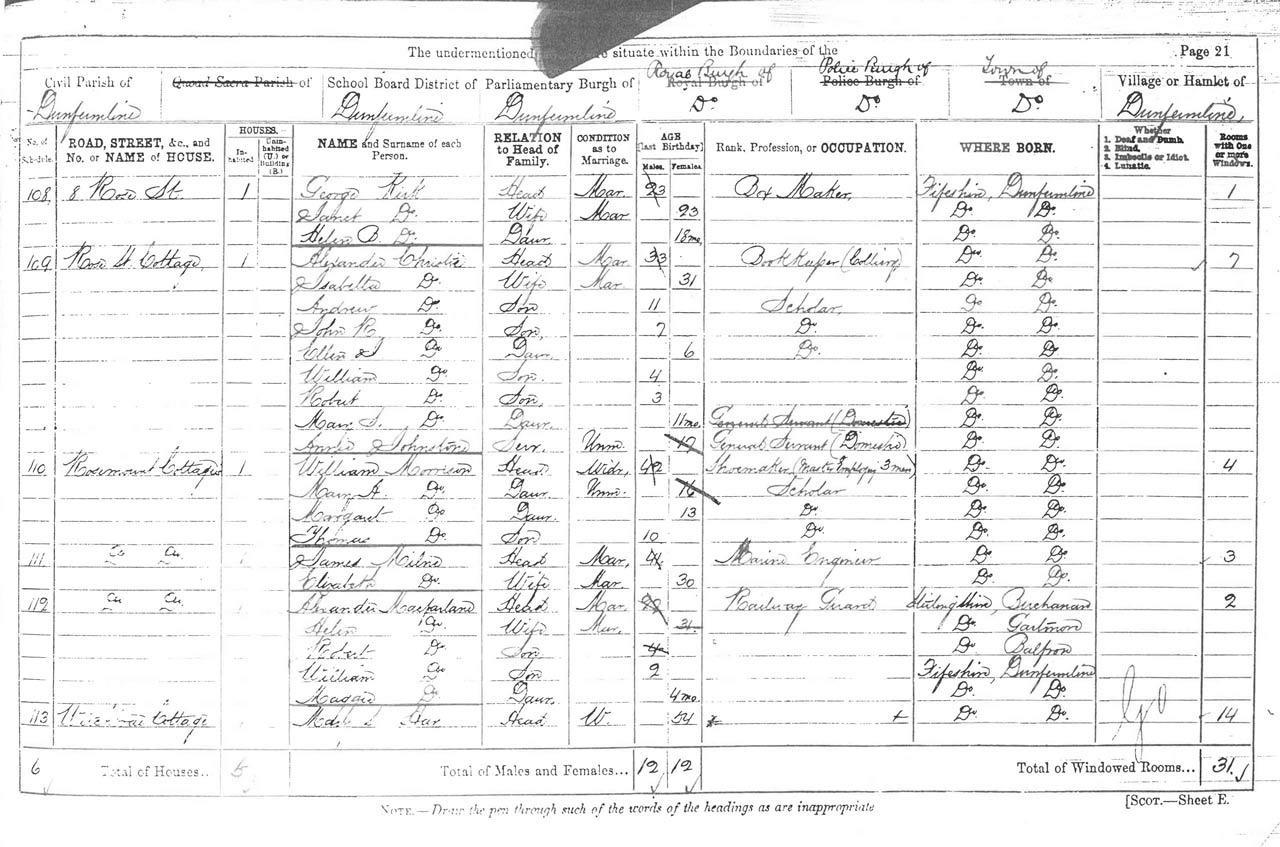 The undermentioned situate within the Boundaries of the Page 21
Civil Parish of Quoad Sacra Parish of School Board District of Parliamentary Burgh of Royal Burgh of Royal Burgh of Police Burgh of Police Burgh of Town of Town of Village or Hamlet of
Dunfermline Dunfermline Dunfermline Do Do Do Dunfermline
No. of Schedule. ROAD, STREET, &c., and No. or NAME of HOUSE. HOUSES. Inhabited Uninhabited (U.) or Building (B.) NAME and Surname of each Person. RELATION to Head of Family. CONDITION as to Marriage. AGE [last Birthday] Males. Females. Rank, Profession, or OCCUPATION. WHERE BORN. Whether 1. Deaf and Dumb. 2. Blind. 3. Imbecile or Idiot. 4. Lunatic. Rooms with One or more Windows.
108 8 Rose St. 1 George Kirk Head Mar. 23 Box Maker, Fifeshire, Dunfermline 1
Janet Do. Wife Mar 23 Do. Do.
Helen B. Do. Daur. 18mo. Do. Do.
109 Rose St. Cottage, 1 Alexander Christie Head Mar 33 Book Keeper (Colliery) Do. Do. 7
Isabella Do. Wife Mar. 31 Do. Do.
Andrew Do. Son 11 Scholar, Do Do.
John R. Do. Son, 7 Do. Do. Do.
Ellen S Do Daur. 6 Do. Do. Do.
William Do Son. 4 Do. Do.
Robert Do. Son, 3 Do. Do.
Mary S. Do. Daur. 11mo. General Servant (Domestic) Do. Do.
Annie Johnstone Serv. Unm. 17 General Servant (Domestic) Do. Do.
110 Rosemount Cottages 1 William Morrison Head Widr, 42 Shoemaker (Master Employing 3 men) Do. Do. 4
Mary A. Do Daur. Unm. 16 Scholar Do. Do.
Margaret Do Daur. 13 Do. Do. Do.
Thomas Do. Son 10 Do. Do. Do.
111 Do Do. 1 James Milne Head Mar, Marine Engineer Do. Do. 3
Elizabeth Do. Wife Mar. 30 Do. Do.
112 Do Do. 1 Alexander Macfarlane Head Mar. Railway Guard Stirlingshire, Buchanan 2
Helen Do Wife Mar. 31 Do. Gartmore
Robert Do. Son 4 Do. Balfron
William Do Son 2 Fifeshire, Dunfermline
Do Daur. 4mo. Do. Do.
113 Cottage Head W. 54 Do. Do. 14
6 Total of Houses.. 5 Total of Males and Females... 12 12 Total of Windowed Rooms... 31
NOTE.—Draw the pen through such of the words of the headings as are inappropriate [SCOT.—Sheet E.